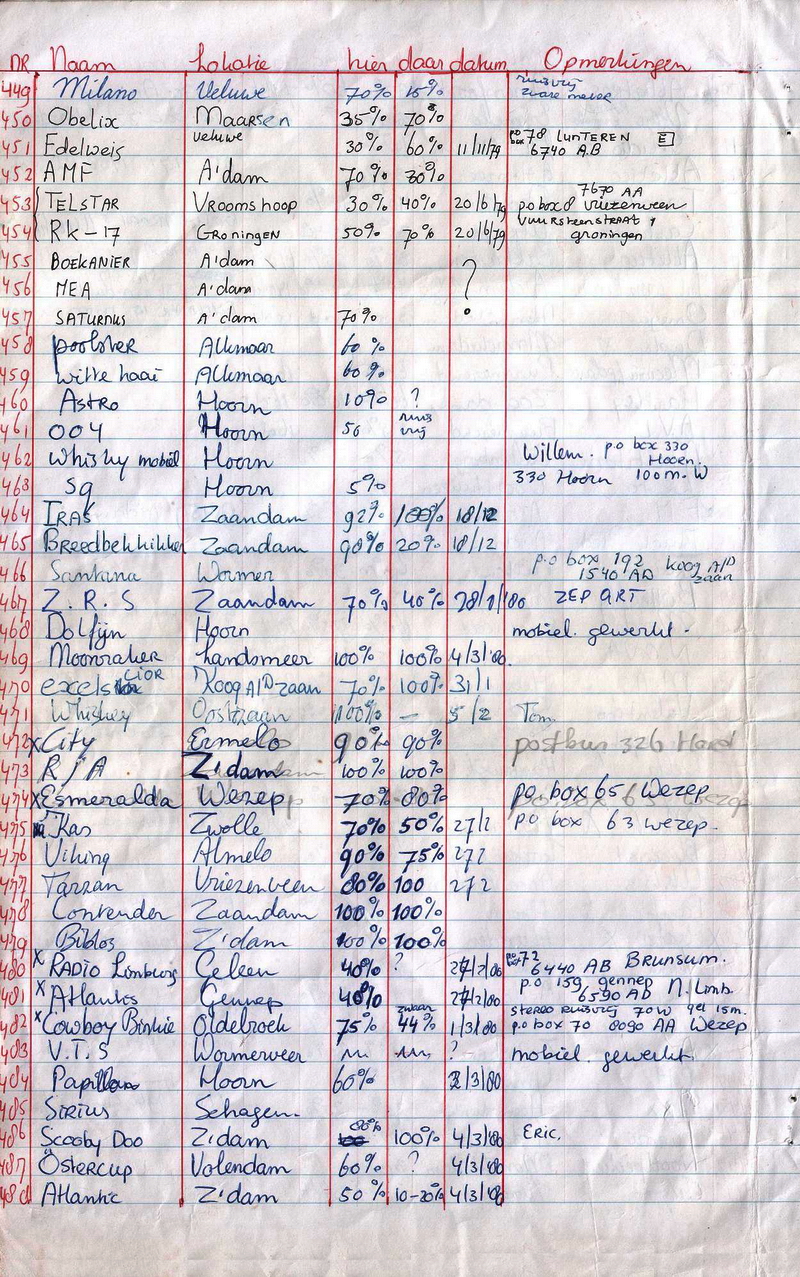 NR Naam Lokatie hier daar datum Opmerkingen
449 Milano Veluwe 70% 15% ruisvrij zware meter
450 Obelix Maarsen 35% 70%
451 Edelweis Veluwe 30% 60% 11/11/79 po box 78 LUNTEREN E
6740 AB
452 AMF A'dam 70% 30%
7670 AA
453 TELSTAR VROOMSHOOP 30% 40% 20/6/79 po box 8 Vriezenveen
454 RK-17 GRONINGEN 50% 70% 20/6/79 VUURSTEENSTRAAT 1
groningen
455 BOEKANIER A'dam
456 MEA A'dam ?
457 SATURNUS A'dam 70%
458 poolster Alkmaar 60%
459 witte haai Alkmaar 60%
460 Astro Hoorn 10% ?
461 004 Hoorn 50 ruis vrij
462 Whisky mobiel Hoorn Willem. p.o box 330
Hoorn.
463 Sq Hoorn 5% 330 Hoorn 100 m. W
464 IRAS Zaandam 92% 100% 18/12
465 Breedbekkikker Zaandam 90% 20% 18/12
466 Santana Wormer p.o box 192 Koog A/D zaan
1540 AD
467 Z.R.S Zaandam 70% 40% 28/1/'80 ZEP QRT
468 Dolfijn Hoorn mobiel. gewerkt.
469 Moonraker Landsmeer 100% 100% 4/3/'80.
470 excelsior Koog A/D zaan 70% 100% 31/1
471 Whiskey Oostzaan 100% - 5/2 Tom
472 x City Ermelo 90% 90% postbus 326 Hard
473 RJA Z'dam 100% 100%
474 x Esmeralda Wezep 70% 80% po box 65 Wezep
475 Kas Zwolle 70% 50% 27/2 po box 63 wezep.
476 Viking Almelo 90% 75% 27/2
477 Tarzan Vriezenveen 80% 100 27/2
478 Contender Zaandam 100% 100%
479 Biblos Z'dam 100% 100%
480 x RADIO Limburg Geleen 40% ? 27/2/80 po box 72
6440 AB BRUNSUM.
481 x Atlantis Gennep 40% 27/2/80 p.o 159 gennep
6590 AD N. Limb.
482 x Cowboy Binkie Oldebroek 75% zwaar 44% 1/3/80 stereo ruisvrij 70W 4el 15m.
p.o box 70 8090 AA Wezep
483 V.T.S Wormerveer ? mobiel. gewerkt.
484 Papillon Hoorn 60% 2/3/80
485 Sirius Schagen.
486 Scooby Doo Z'dam 90% 100% 4/3/80 ERIC.
487 Östercup Volendam 60% ? 4/3/80
488 Atlantic Z'dam 50% 10-20% 4/3/80